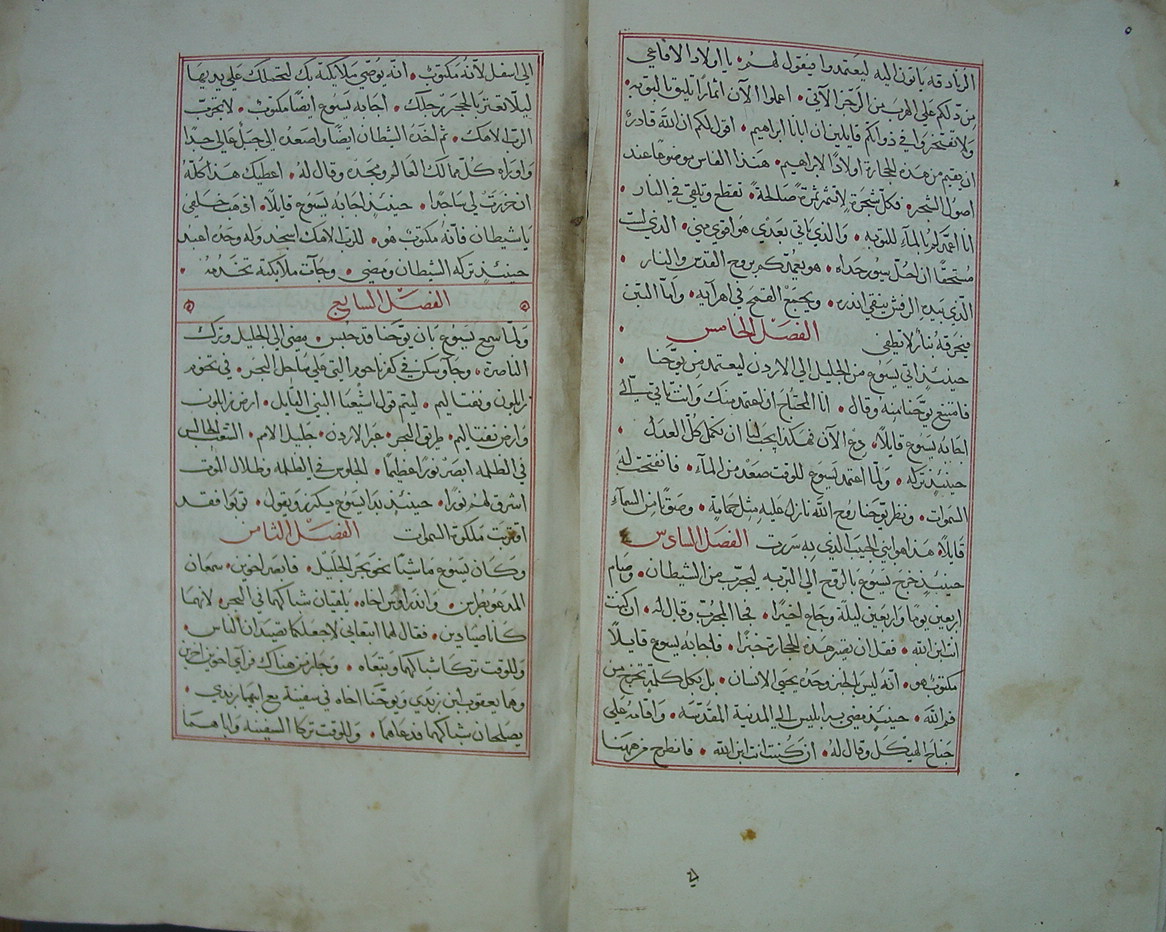 ٥
الزنادقه ياتون اليه ليعتمدوا فيقول لهم • يا اولاد الافاعي
من دلكم على الهرب من الرجز الآتي • اعملوا الآن اثمارًا تليق بالتوبه
ولا تفتخروا في ذواتكم قايلين ان ابانا ابراهيم • اقول لكم ان الله قادر
ان يقيم من هذه الحجارة اولادًا لابراهيم • هذا الفاس موضوعا عند
اصول الشجر • فكل شجرةٍ لا تثمر ثمرةً صالحةً • تقطع وتلقى في النار •
انا اعمدكم بالمآء للتوبه • والذي ياتي بعدي هو اقوى مني • الذي لست
مستحقًا ان احل سيور حذاه • هو يعمدكم بروح القدس والنار •
الذي بيده الرفش ينقي اندره • ويجمع القمح في اهرآيه • وامّا التبن
فيحرقه بنار لا تطفى الفصل الخامس •
حينئذٍ اتى يسوع من الجليل الى الاردن ليعتمد من يوحنا •
فامتنع يوحنا منه وقال • انا المحتاج ان اعتمد منك وانت تاتي اليّ
اجابه يسوع قايلاً • دع الآن فهكذا يجب لنا ان نكمل كل العدل •
حينئذٍ تركه • ولمّا اعتمد يسوع للوقت صعد من المآء • فانفتحت له
السموات • ونظر يوحنا روح الله نازل عليه مثل حمامةٍ • وصوتًا من السمآء
قايلاً هذا هو ابني الحبيب الذي به سررت الفصل السادس
حينئذٍ خرج يسوع بالروح الى البريه ليجرب من الشيطان • وصام
اربعين يومًا واربعين ليلة وجاع اخيرًا • فجا المجرب وقال له • ان كنت
انت ابن الله • فقل ان تصير هذه الحجارة خبزًا • فاجابه يسوع قايلاً
مكتوب هو • انّه ليس بالخبز وحده يحيى الانسان • بل بكل كلمةٍ تخرج من
فم الله • حينئذٍ مضى به ابليس الى المدينة المقدسه • واقامه على
جناح الهيكل وقال له • ان كنت انت ابن الله • فانطرح من ههنا
الى اسفل لانه مكتوب • انه يوصي ملايكته بك لتحملك على يديها
ليلا تعثر بالحجر رجلك • اجابه يسوع ايضًا مكتوب • لا تجرب
الرب الاهك • ثم اخذه الشيطان ايضا واصعده الى جبل عالي جدا
واوراه كل ممالك العالم ومجده وقال له • اعطيك هذا كله
ان خررت لي ساجدًا • حينئذٍ اجابه يسوع قايلاً • اذهب خلفي
يا شيطان فانه مكتوب هو • للرب الاهك اسجد وله وحده اعبد
حينئذٍ تركه الشيطان ومضى • وجآت ملايكته تخدمه •
الفصل السابع
ولمّا سمع يسوع بان يوحنا قد حبس • مضى الى الجليل وترك
الناصره • وجآ وسكن في كفرناحوم التي على ساحل البحر • في تخوم
زابلون ونفتاليم • ليتم قول اشعيا النبي القايل • ارض زابلون
وارض نفتاليم • طريق البحر • عبر الاردن • جليل الامم • الشعب الجالس
في الظلمه ابصر نورًا عظيمًا • الجلوس في الظلمه وظلال الموت
اشرق لهم نورا • حينئذٍ بدا يسوع يكرز ويقول • توبوا فقد
اقتربت ملكوت السموات الفصل الثامن
وكان يسوع ماشيًا نحو بحر الجليل • فابصر اخوين • سمعان
المدعو بطرس • واندراوس اخاه • يلقيان شباكهما في البحر • لانهما
كانا صيادين • فقال لهما اتبعاني لاجعلكما تصيدان الناس •
وللوقت تركا شباكهما وتبعاه • وجاز من هناك فراى اخوين اخرين
وهما يعقوب ابن زبدي ويوحنا اخاه في سفينة مع ابيهما زبدي •
يصلحان شباكهما فدعاهما • وللوقت تركا السفينه واباهما